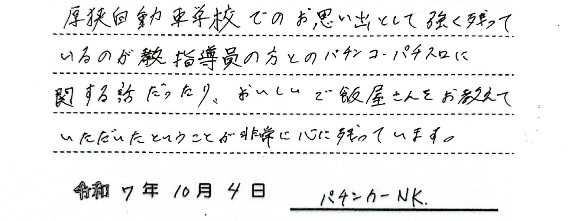 厚狭自動車学校でのお思い出として強く残って
いるのが教指導員の方とのパチンコ・パチスロに
関する話だったり、おいしいご飯屋さんをお教えて
いただいたということが非常に心に残っています。
令和7年10月4日 パチンカーNK.